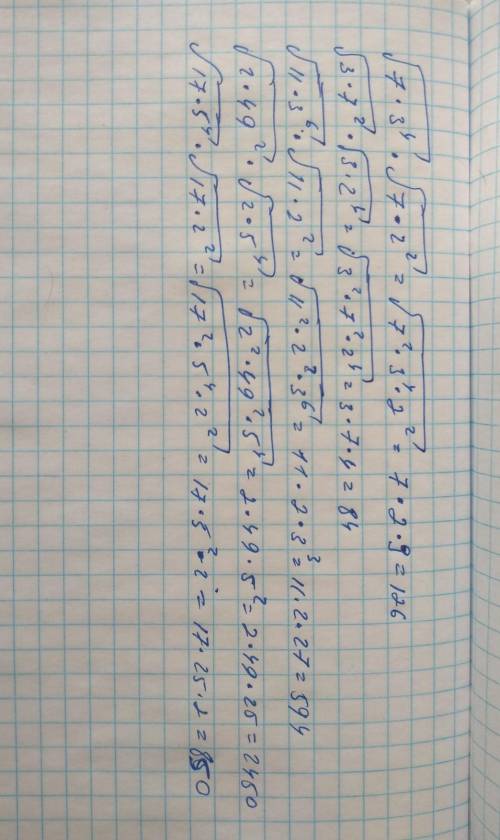 √7·3⁴ · √7·2² = √7²·3⁴·2² = 7·2·9 = 126
√3·7² · √3·2⁴ = √3²·7²·2⁴ = 3·7·4 = 84
√11·3⁶ · √11·2² = √11²·2²·3⁶ = 11·2·3³ = 11·2·27 = 594
√2·49² · √2·5⁴ = √2²·49²·5⁴ = 2·49·5² = 2·49·25 = 2450
√17·5⁴ · √17·2² = √17²·5⁴·2² = 17·5²·2 = 17·25·2 = 850